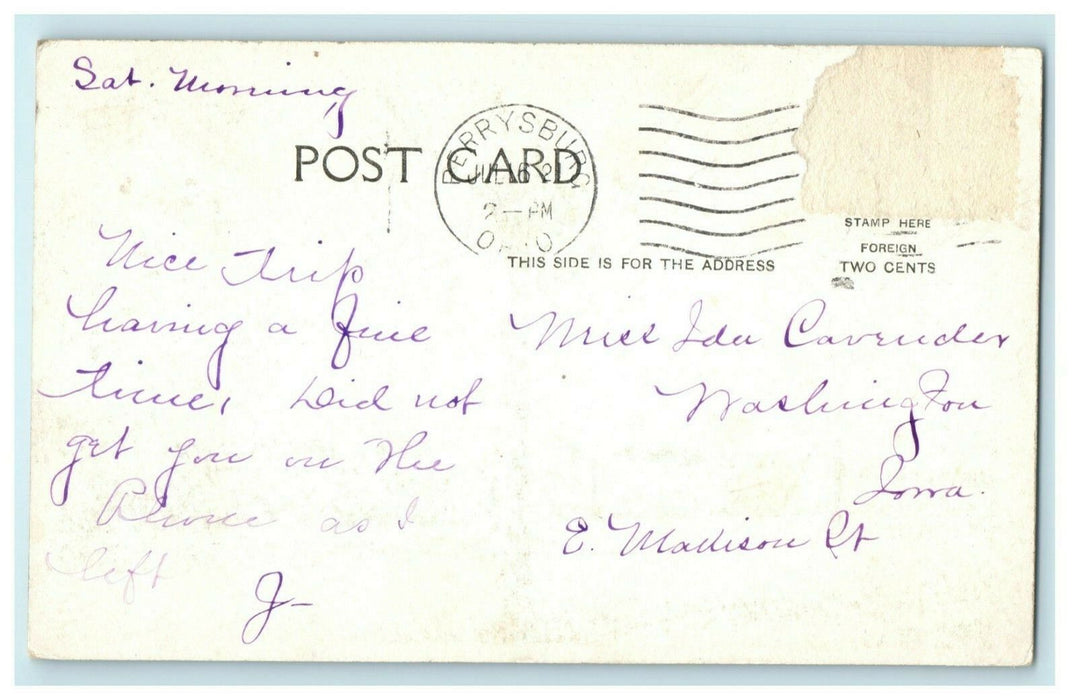 Sat. Morning
POST CARD
PERRYSBURG
JUL 6
2-PM
OHIO
STAMP HERE
FOREIGN
TWO CENTS
THIS SIDE IS FOR THE ADDRESS
Nice trip
having a fine
time, Did not
get you on the
Phone as I
left
J-
Miss Ida Cavender
Washington
Iowa.
E. Madison St